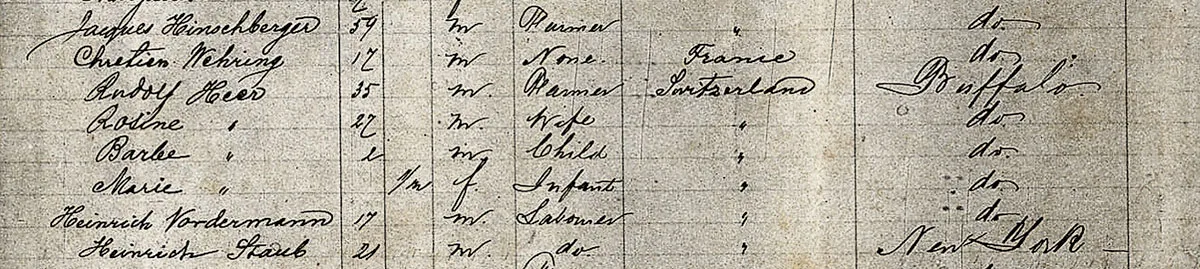 Jaques Hinschberger 59 m Farmer " do
Chretien Wehring 17 m None. France do
Rudolf Heer 35 m. Farmer Switzerland Buffalo
Rosine " 27 m. Wife " do.
Barbe " 2 m, Child " do.
Marie " 1/m f. Infant " do
Heinrich Vordermann 17 m. Labourer " do
Heinrich Staub 21 m. do. " New York —